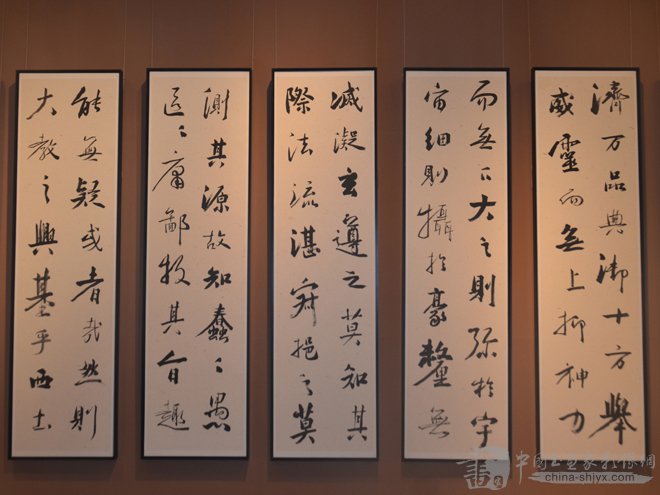 濟万品典御十方舉
威靈而無上抑神力
而無下大之則弥於宇
宙細則攝於豪釐無
滅凝玄遵之莫知其
際法流湛寂挹之莫
測其源故知蠢〻愚
區〻庸鄙投其旨趣
能無疑或者哉然則
大教之興基乎西土
中國书画家影像網
china-shjyx.com